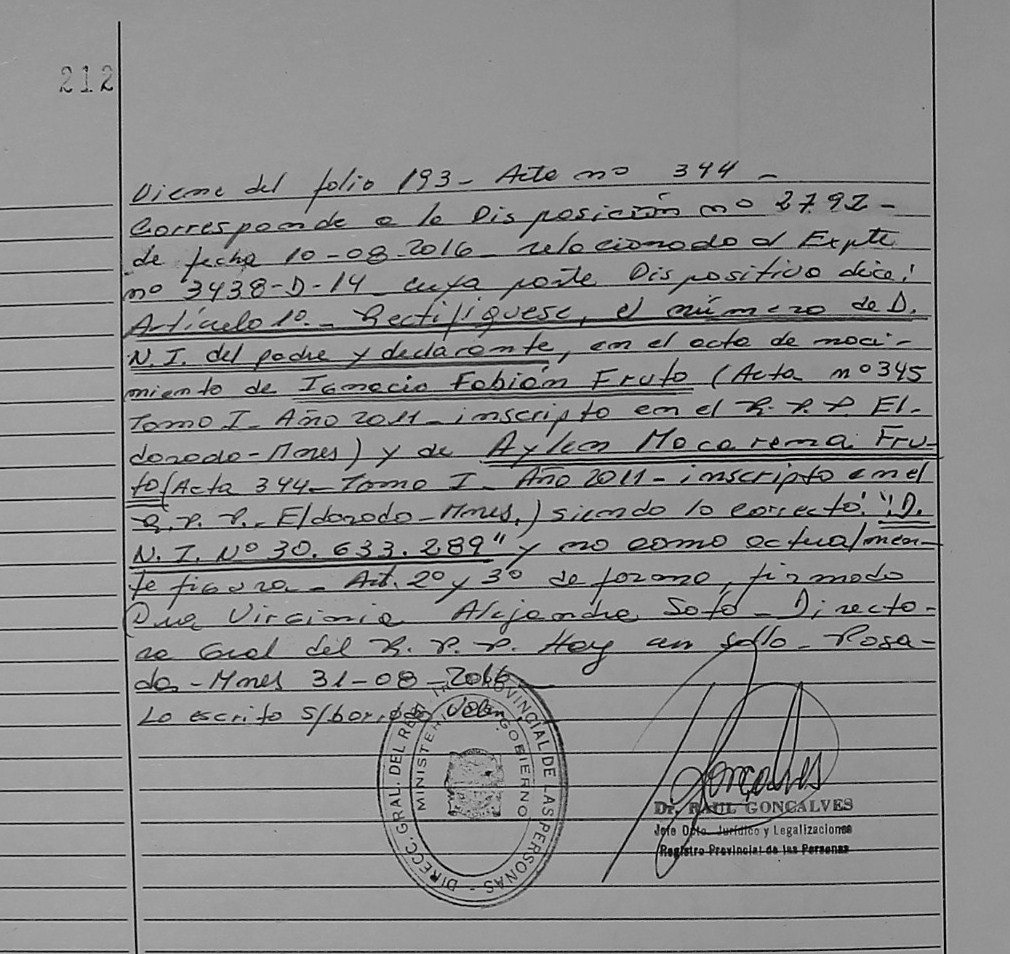 212
Viene del folio 193 - Acta nº 344 -
Corresponde a la Disposición nº 2792 -
de fecha 10-08-2016 - relacionado al Expte
nº 3438-D-14 cuya parte Dispositivo dice:
Artículo 1º.- Rectifíquese, el número de D.
N.I. del padre y declarante, en el acta de naci-
miento de Ignacio Fabián Fruto (Acta nº 345
Tomo I - Año 2011 - inscripto en el R.P.P. El-
dorado-Mnes) y de Aylen Macarena Fru-
to (Acta 344 - Tomo I - Año 2011 - inscripto en el
R.P.P. - Eldorado - Mnes.) siendo lo correcto: "D.
N.I. Nº 30.633.289" y no como actualmen-
te figura - Art. 2º y 3º de forma, firmado
Dra Virginia Alejandra Soto - Directo-
ra Gral del R.P.P. Hay un sello - Posa-
das - Mnes 31-08-2016
Lo escrito s/borrado Vale.
DIRECC. GRAL. DEL REG. PROVINCIAL DE LAS PERSONAS -
MINISTERIO GOBIERNO
Gonçalves
Dr. RAUL GONCALVES
Jefe Dpto. Jurídico y Legalizaciones
Registro Provincial de las Personas